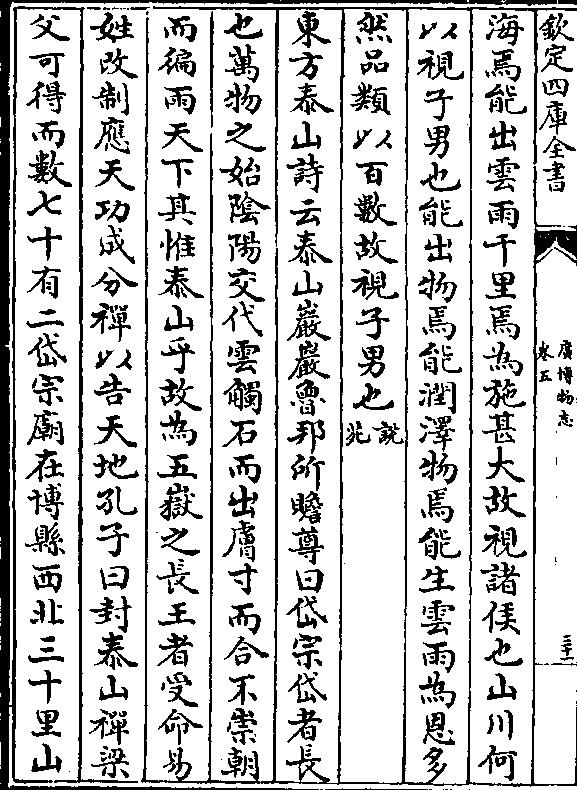 欽定四庫全書
廣博物志
卷五
三十一
海焉能出雲雨千里焉為施甚大故視諸侯也山川何
以視子男也能出物焉能潤澤物焉能生雲雨為恩多
然品類以百數故視子男也說苑
東方泰山詩云泰山巖巖魯邦所瞻尊曰岱宗岱者長
也萬物之始陰陽交代雲觸石而出膚寸而合不崇朝
而徧雨天下其惟泰山乎故為五嶽之長王者受命易
姓改制應天功成分禪以告天地孔子曰封泰山禪梁
父可得而數七十有二岱宗廟在博縣西北三十里山